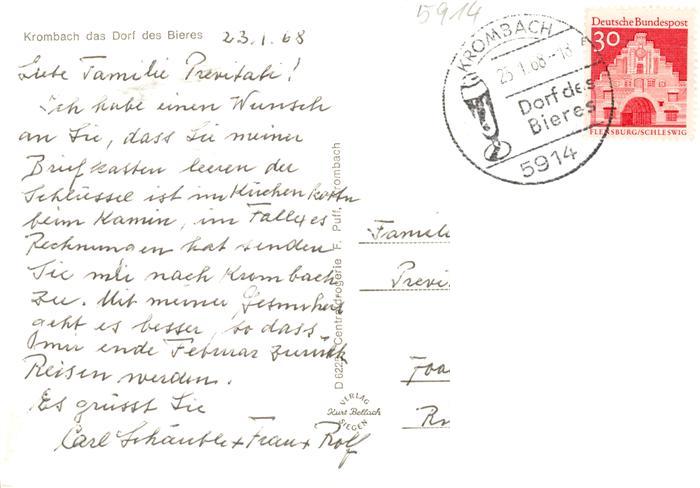 5914
Krombach das Dorf des Bieres 23.1.68
Liebe Familie Previtali!
Ich habe einen Wunsch
an Sie, dass Sie meiner
Briefkasten leeren der
Schlüssel ist im Küchenkasten
beim Kamin, im Fall es
Rechnungen hat senden
Sie mir nach Krombach
zu. Mit meiner Gesundheit
geht es besser, so dass
mir ende Februar zurück
Reisen werden.
Es grüsst Sie
Carl Schäuble + Frau + Rolf
Centraldrogerie F. Puff, Krombach
VERLAG
Kurt Bellach
SIEGEN
KROMBACH
Dorf des
Bieres
5914
Deutsche Bundespost
30
FLENSBURG/SCHLESWIG
Famili
Previ